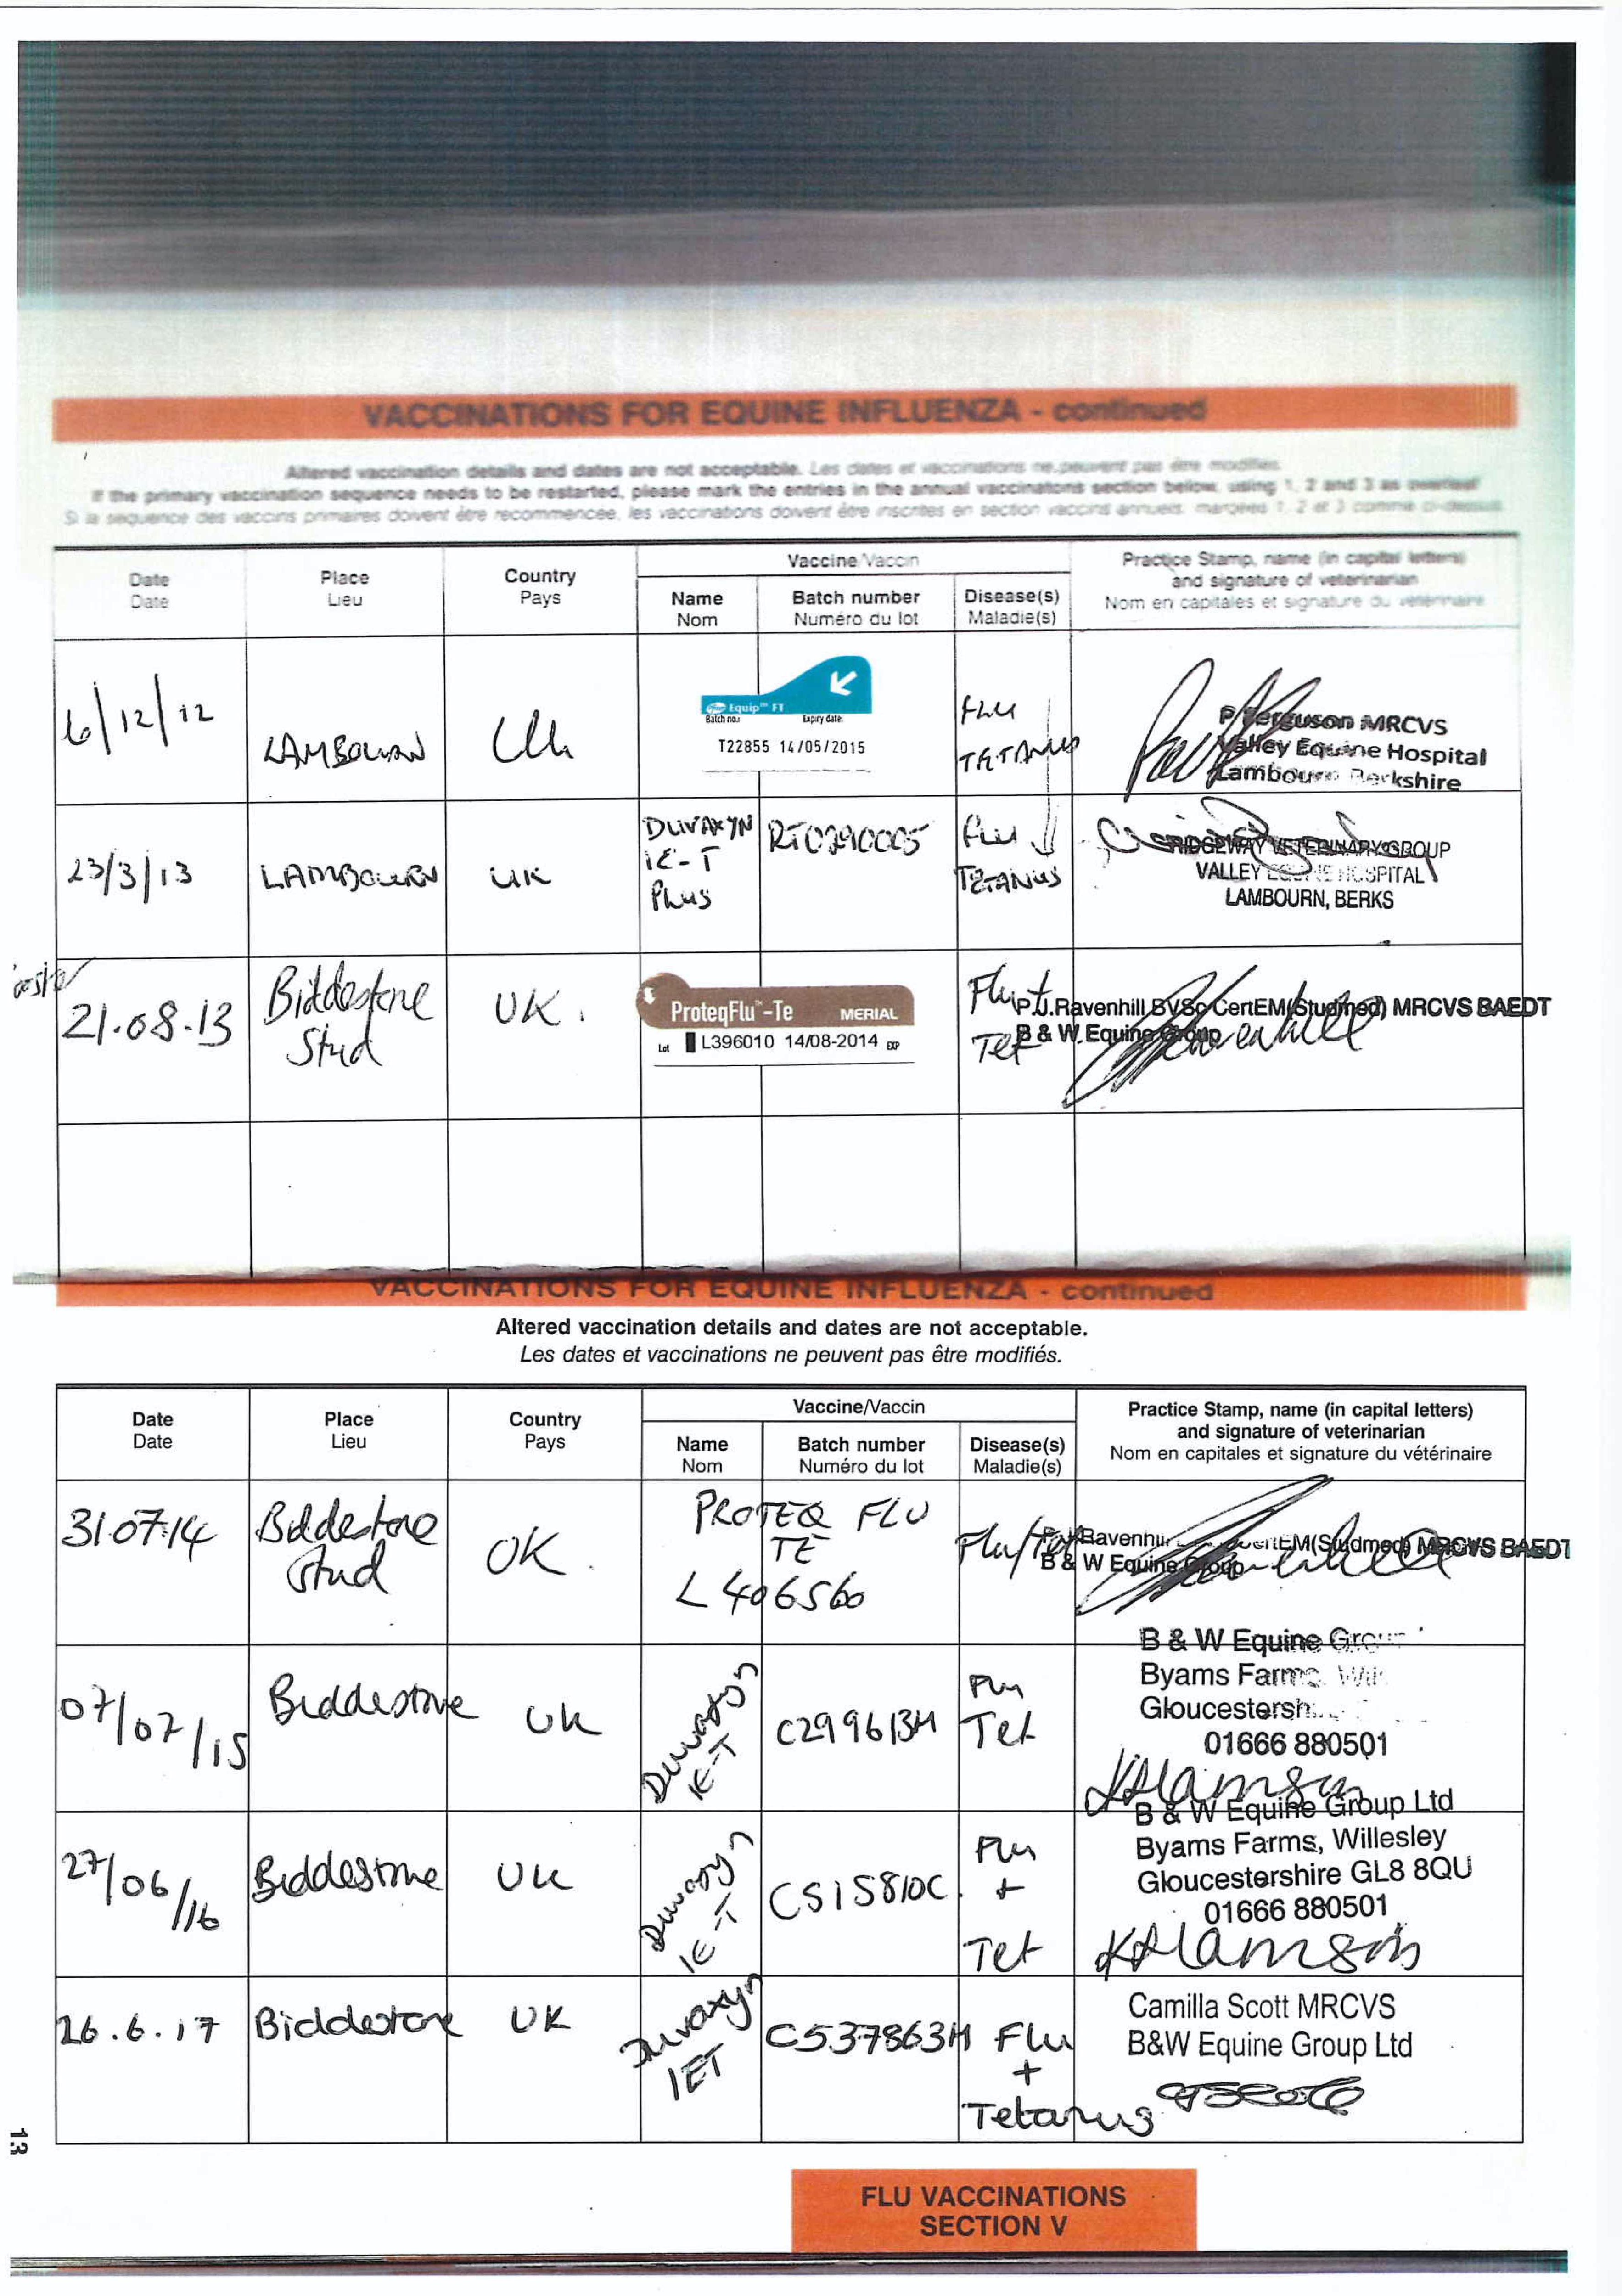 VACCINATIONS FOR EQUINE INFLUENZA - continued
Altered vaccination details and dates are not acceptable. Les dates et vaccinations ne peuvent pas être modifiés.
If the primary vaccination sequence needs to be restarted, please mark the entries in the annual vaccinations section below, using 1, 2 and 3 as overleaf
Si la sequence des vaccins primaires doivent être recommencée, les vaccinations doivent être inscrites en section vaccins annuels, marqées 1, 2 et 3 comme ci-dessus
Date Place Country Vaccine/Vaccin Practice Stamp, name (in capital letters)
Date Lieu Pays and signature of veterinarian
Name Batch number Disease(s) Nom en capitales et signature du vétérinaire
Nom Numéro du lot Maladie(s)
6/12/12 LAMBOURN UK
Equip™ FT
Batch no.: Expiry date:
T22855 14/05/2015
FLU
TETANUS
P Ferguson MRCVS
Valley Equine Hospital
Lambourn Berkshire
23/3/13 LAMBOURN UK
DUVAXYN
IE-T
Plus
Flu
TETANUS
RIDGEWAY VETERINARY GROUP
VALLEY EQUINE HOSPITAL
LAMBOURN, BERKS
21.08.13 Biddestone
Stud
UK.
ProteqFlu™-Te MERIAL
Lot L396010 14/08-2014 EXP
Flu +
Tet
P.J.Ravenhill BVSc CertEM(Studmed) MRCVS BAEDT
B & W Equine Group
VACCINATIONS FOR EQUINE INFLUENZA - continued
Altered vaccination details and dates are not acceptable.
Les dates et vaccinations ne peuvent pas être modifiés.
Date Place Country Vaccine/Vaccin Practice Stamp, name (in capital letters)
Date Lieu Pays and signature of veterinarian
Name Batch number Disease(s) Nom en capitales et signature du vétérinaire
Nom Numéro du lot Maladie(s)
31.07.14 Biddestone
Stud
UK.
PROTEQ FLU
TE
L406560
Flu/Tet
Ravenhill CertEM(Studmed) MRCVS BAEDT
B & W Equine Group
07/07/15 Biddestone UK
Duvaxyn
IE-T
C299613M
Flu
Tet
B & W Equine Group
Byams Farms, Wil
Gloucestersh
01666 880501
27/06/16 Biddestone UK
Duvaxyn
IE-T
C515810C
Flu
+
Tet
B & W Equine Group Ltd
Byams Farms, Willesley
Gloucestershire GL8 8QU
01666 880501
26.6.17 Biddestone UK
Duvaxyn
IET
C537863M
Flu
+
Tetanus
Camilla Scott MRCVS
B&W Equine Group Ltd
13
FLU VACCINATIONS
SECTION V